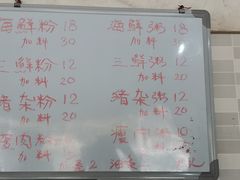 海鮮粉 18 海鮮粥 18
加料 30 加料 30
三鮮粉 12 三鮮粥 12
加料 20 加料 20
猪杂粉 12 猪杂粥 12
加料 20 加料 20
肉 瘦肉粥 10
加料 加料
2